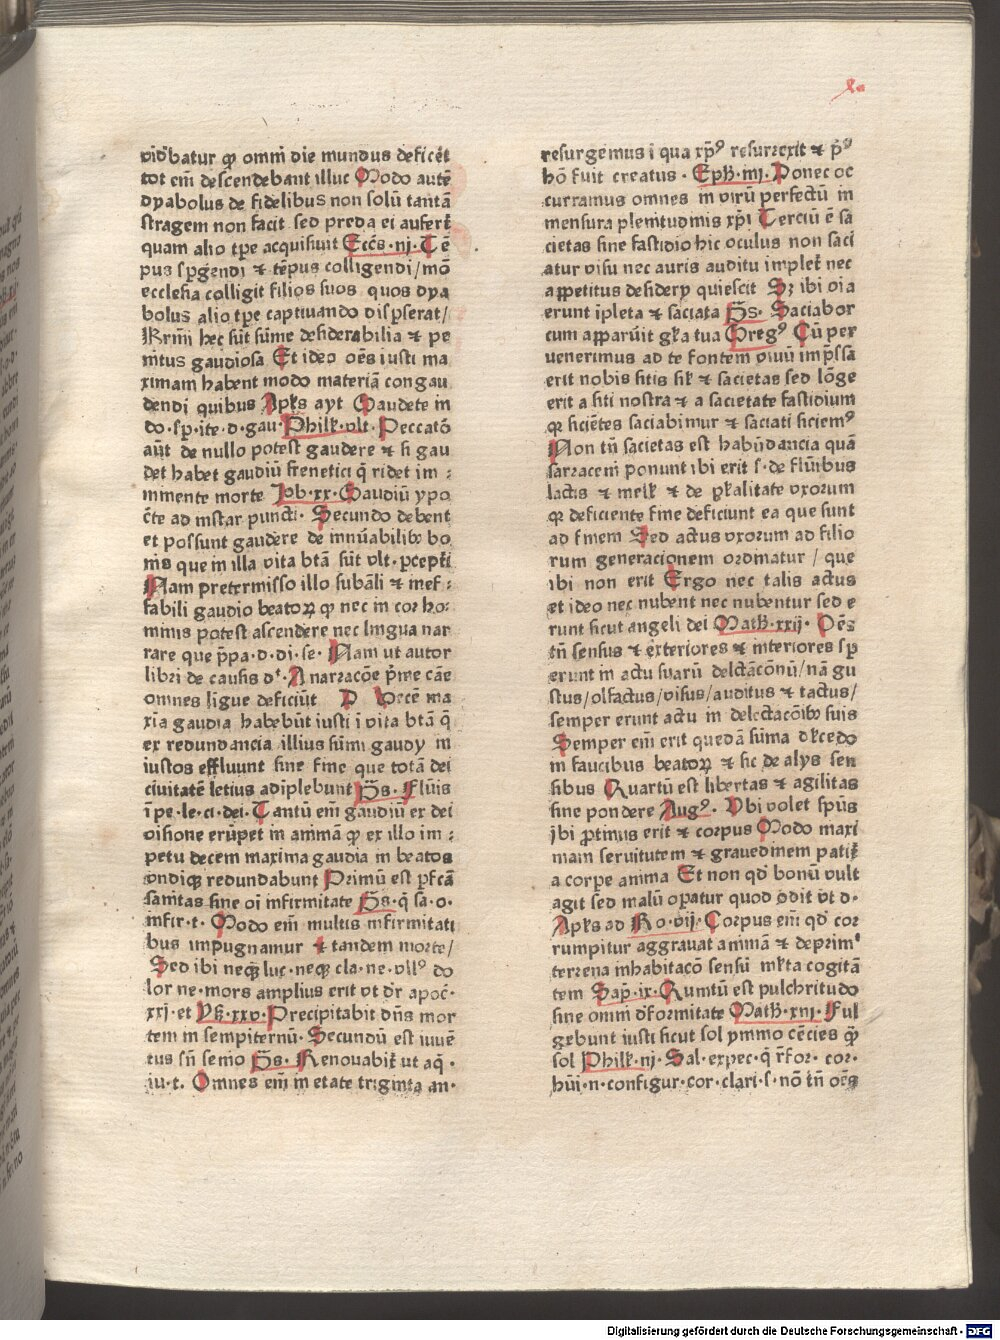 vid'batur qꝫ omni die mundus deficēt
tot em̄ descendebant illuc Modo autē
dyabolus de fidelibus non solū tantā
stragem non facit sed preda ei aufert̄
quam alio tp̄e acquisiuit Ecc̄s · iij · Tē
pus sp̱gendi ⁊ tēpus colligendi / mō
ecclesia colligit filios suos quos dya
bolus alio tp̄e captiuando disp̱serat /
hec sūt sūme desiderabilia ⁊ pe
nitus gaudiosa Et ideo oēs iusti ma
ximam habent modo materiā congau
dendi quibus Apl̄s ayt Gaudete in
do · sp̱ · ite · d · gau · Phil̄ · vlt · Peccatō
aūt de nullo potest gaudere ⁊ si gau
det habet gaudiū frenetici q̄ ridet im :
minente morte Job · xx · Gaudiū ypo
c̄te ad instar puncti · Secundo debent
et possunt gaudere de inn̄uabilibꝫ bo
nis que in illa vita btā sūt vlt · p̱cept̄i
Nam pretermisso illo subāli ⁊ inef :
fabili gaudio beatoꝝ qꝫ nec in cor ho
minis potest ascendere nec lingua nar
rare que p̄pa · d · di · se · Nam ut autor
libri de causis dt · A narracōe p̄me cāe
omnes ligue deficiūt P Decē ma
xīa gaudia habebūt iusti ī vita btā q̄
ex redundancia illius sūmi gaudy in
iustos effluunt sine fine que totā dei
ciuitatē letius adiplebunt Ps · Flūis
ī pe · le · ci · dei · Tantū em̄ gaudiū ex dei
visione erūpet in animā qꝫ ex illo im :
petu decem maxima gaudia in beatos
vndiqꝫ redundabunt Primū est p̱fcā
sanitas sine oī infirmitate Ps · q̄ sa · o ·
infir · t · Modo em̄ multis infirmitati
bus impugnamur ⁊ tandem morte /
Sed ibi neqꝫ luc · neqꝫ cla · ne · vll9 do
lor ne · mors amplius erit vt dr̄ apoc̄ ·
xxj · et Ys̄ · xxv · Precipitabit dn̄s mor
tem in sempiternū · Secundū est iuuē
tus sn̄ senio Ps · Renouabit̄ ut aq̄ ·
iu · t · Omnes em̄ in etate triginta an ·
resurgemus ī qua xp̄9 resurrexit ⁊ p̄9
hō fuit creatus · Eph̄ · iiij · Donec oc
curramus omnes in virū perfectū in
mensura plenitudinis xp̄i Terciū ē sa
cietas sine fastidio hic oculus non saci
atur visu nec auris auditu implet̄ nec
appetitus desidery quiescit Sꝫ ibi oīa
erunt ipleta ⁊ saciata Ps · Saciabor
cum apparūit gl̄ia tua Greg9 Cū per
uenerimus ad te fontem viuū imp̄ssa
erit nobis sitis sil̄ ⁊ sacietas sed lōge
erit a siti nostra ⁊ a sacietate fastidium
qꝫ siciētes saciabimur ⁊ saciati siciem9
Non tn̄ sacietas est habūdancia quā
sarraceni ponunt ibi erit s · de flūībus
lactis ⁊ mell̄ ⁊ de pl̄ralitate vxorum
qꝫ deficiente fine deficiunt ea que sunt
ad finem Sed actus vxorum ad filio
rum generacionem ordinatur / que
ibi non erit Ergo nec talis actus
et ideo nec nubent nec nubentur sed e
runt sicut angeli dei Math̄ · xxij · Oēs
tn̄ sensus ⁊ exteriores ⁊ interiores sp̱
erunt in actu suarū delctācōnū / nā gu
stus / olfactus / visus / auditus ⁊ tactus /
semper erunt actu in delectacōibꝫ suis
Semper em̄ erit quedā sūma dl̄cedo
in faucibus beatoꝝ ⁊ sic de alys sen
sibus Quartū est libertas ⁊ agilitas
sine pondere Aug9 · Vbi volet spūs
ibi p̱tinus erit ⁊ corpus Modo maxi
mam seruitutem ⁊ grauedinem patit̄
a corpe anima Et non qd̄ bonū vult
agit sed malū op̱atur quod odit vt d ·
Apl̄s ad Ro · vij · Corpus em̄ qd̄ cor
rumpitur aggrauat animā ⁊ deprimt
terrena inhabitacō sensū ml̄ta cogitā
tem Sap̱ · ix · Quintū est pulchritudo
sine omni d'formitate Math̄ · xiij · Ful
gebunt iusti sicut sol ymmo cēcies qꝫ
sol Phil̄ · iij · Sal · expec · q̄ r̄for · cor ·
hūi · n · configur · cor · clari · s · nō tn̄ oēs
Digitalisierung gefördert durch die Deutsche Forschungsgemeinschaft - DFG